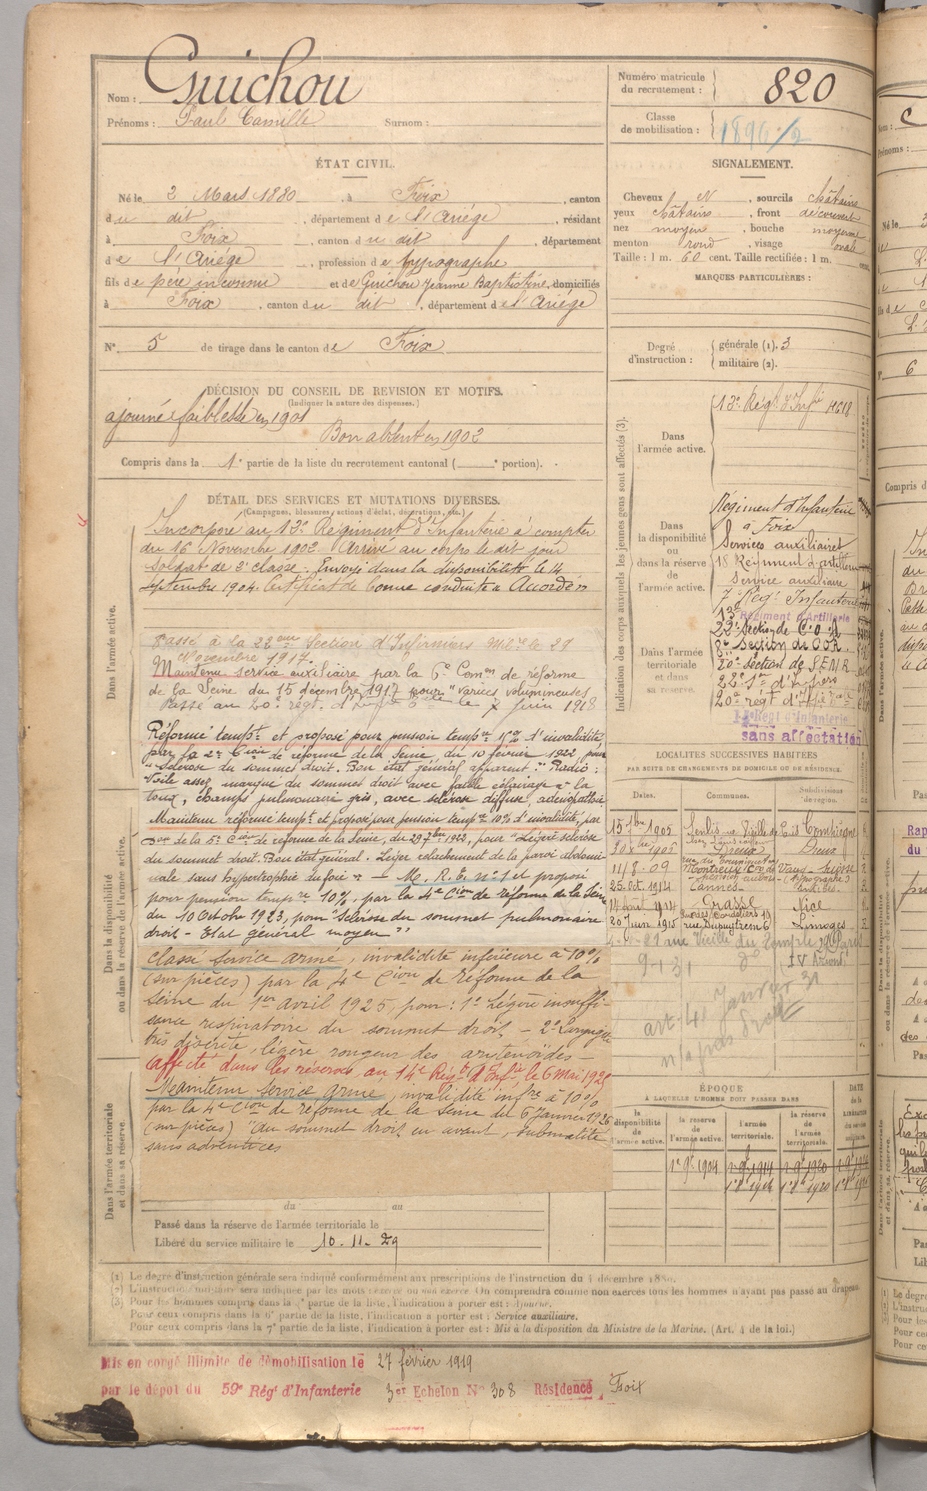 Nom : Guichou
Prénoms : Paul Camille Surnom :
Numéro matricule du recrutement : 820
Classe de mobilisation : 1896/2
ÉTAT CIVIL.
Né le 2 Mars 1880, à Foix, canton
du dit, département de l'Ariége, résidant
à Foix, canton du dit, département
de l'Ariége, profession de typographe
fils de père inconnu et de Guichou Jeanne Baptistine, domiciliés
à Foix, canton du dit, département de l'Ariége
N° 5 de tirage dans le canton de Foix
SIGNALEMENT.
Cheveux N, sourcils châtains
yeux châtains, front découvert
nez moyen, bouche moyenne
menton rond, visage ovale
Taille : 1 m. 60 cent. Taille rectifiée : 1 m. cent.
MARQUES PARTICULIÈRES :
Degré d'instruction : générale (1). 3
militaire (2).
DÉCISION DU CONSEIL DE REVISION ET MOTIFS.
(Indiquer la nature des dispenses.)
ajourné faiblesse en 1901
Bon absent en 1902
Compris dans la 1e partie de la liste du recrutement cantonal ( e portion).
DÉTAIL DES SERVICES ET MUTATIONS DIVERSES.
(Campagnes, blessures, actions d'éclat, décorations, etc.)
Dans l'armée active.
Incorporé au 13e Régiment d'Infanterie à compter
du 16 Novembre 1902. Arrivé au corps le dit jour
Soldat de 2e classe. Envoyé dans la disponibilité le 14
septembre 1904. Certificat de bonne conduite "Accordé"
Passé à la 22eme Section d'Infirmiers Mlres le 29
Novembre 1917.
Maintenu service auxiliaire par la 6e Comon de réforme
de la Seine du 15 décembre 1917 pour "varices volumineuses
Passé au 20e régt. d'Inf le 7 Juin 1918
Réformé tempre et proposé pour pension tempre 10% d'invalidité
par la 2e Cion de réforme de la Seine, du 10 février 1922 pour
"Sclérose du sommet droit. Bon état général apparent." Radio :
Voile assez marqué du sommet droit avec faible éclairage à la
toux, champs pulmonaire gris, avec sclérose diffuse, adénopathie
Maintenu réformé tempre et proposé pour pension tempre 10% d'invalidité, par
de la 5e Cion de réforme de la Seine, du 29 7bre 1922, pour "Légère sclérose
du sommet droit. Bon état général. Léger relachement de la paroi abdomi-
nale sans hypertrophie du foie" – M. R. T. n° 1 et proposé
pour pension tempre 10%, par la 4e Cion de réforme de la Seine
du 10 Octobre 1923, pour "Sclérose du sommet pulmonaire
droit – Etat général moyen"
Classé Service armé, invalidité inférieure à 10%
(sur pièces) par la 4e Cion de réforme de la
Seine du 1er avril 1925, pour : 1° Légère insuffi-
sance respiratoire du sommet droit – 2° Laryngite
très discrète, légère rougeur des arytenoïdes –
Affecté dans les réserves au 14e Régt d'Infie, le 6 Mai 192
Maintenu Service Armé, invalidité infre à 10%
par la 4e Cion de réforme de la Seine du 6 Janvier 1926
(sur pièces) "du sommet droit en avant, submatité
sans adventices
Dans la disponibilité ou dans la réserve de l'armée active.
Dans l'armée territoriale et dans sa réserve.
du au
Passé dans la réserve de l'armée territoriale le
Libéré du service militaire le 10.11.29
Indication des corps auxquels les jeunes gens sont affectés (3).
Dans l'armée active.
13e Régt d'Infie
Dans la disponibilité ou dans la réserve de l'armée active.
Régiment d'Infanterie
à Foix
Services auxiliaires
18 Régiment d'artillerie
Service auxiliaire
7e Régt Infanterie
Dans l'armée territoriale et dans sa réserve.
13e Régiment d'Artillerie
22e Section de C.O.A
8e Section de COA
20e section de S.E.M.R.
20e régt d'Inf
Régt d'Infanterie
sans affectation
LOCALITÉS SUCCESSIVES HABITÉES
PAR SUITE DE CHANGEMENTS DE DOMICILE OU DE RÉSIDENCE.
Dates. Communes. Subdivisions de région.
15 1905 Senlis Compiègne
1905 Dreux Dreux
11/8-09 Montreux
25.Oct.1914 Cannes Antibes
1914 Grasse Nice
20 Juin 1915 rue Dupuytren 6 Limoges
21 rue Vieille du Temple Paris
9-1-31
art. 41 Janvier 31
n'a pas droit
ÉPOQUE
À LAQUELLE L'HOMME DOIT PASSER DANS
la disponibilité de l'armée active. la réserve de l'armée active. l'armée territoriale. la réserve de l'armée territoriale. DATE de la LIBÉRATION du service militaire.
1er 9e 1904 1er 9e 1914 1er 9e 1920
(1) Le degré d'instruction générale sera indiqué conformément aux prescriptions de l'instruction du 4 décembre 1889.
(2) L'instruction militaire sera indiquée par les mots exercé ou non exercé. On comprendra comme non exercés tous les hommes n'ayant pas passé au drapeau.
(3) Pour les hommes compris dans la 5e partie de la liste, l'indication à porter est : Ajourné.
Pour ceux compris dans la 6e partie de la liste, l'indication à porter est : Service auxiliaire.
Pour ceux compris dans la 7e partie de la liste, l'indication à porter est : Mis à la disposition du Ministre de la Marine. (Art. 4 de la loi.)
Mis en congé illimité de démobilisation le 27 février 1919
par le dépôt du 59e Régt d'Infanterie 3er Echelon N° 308 Résidence Foix